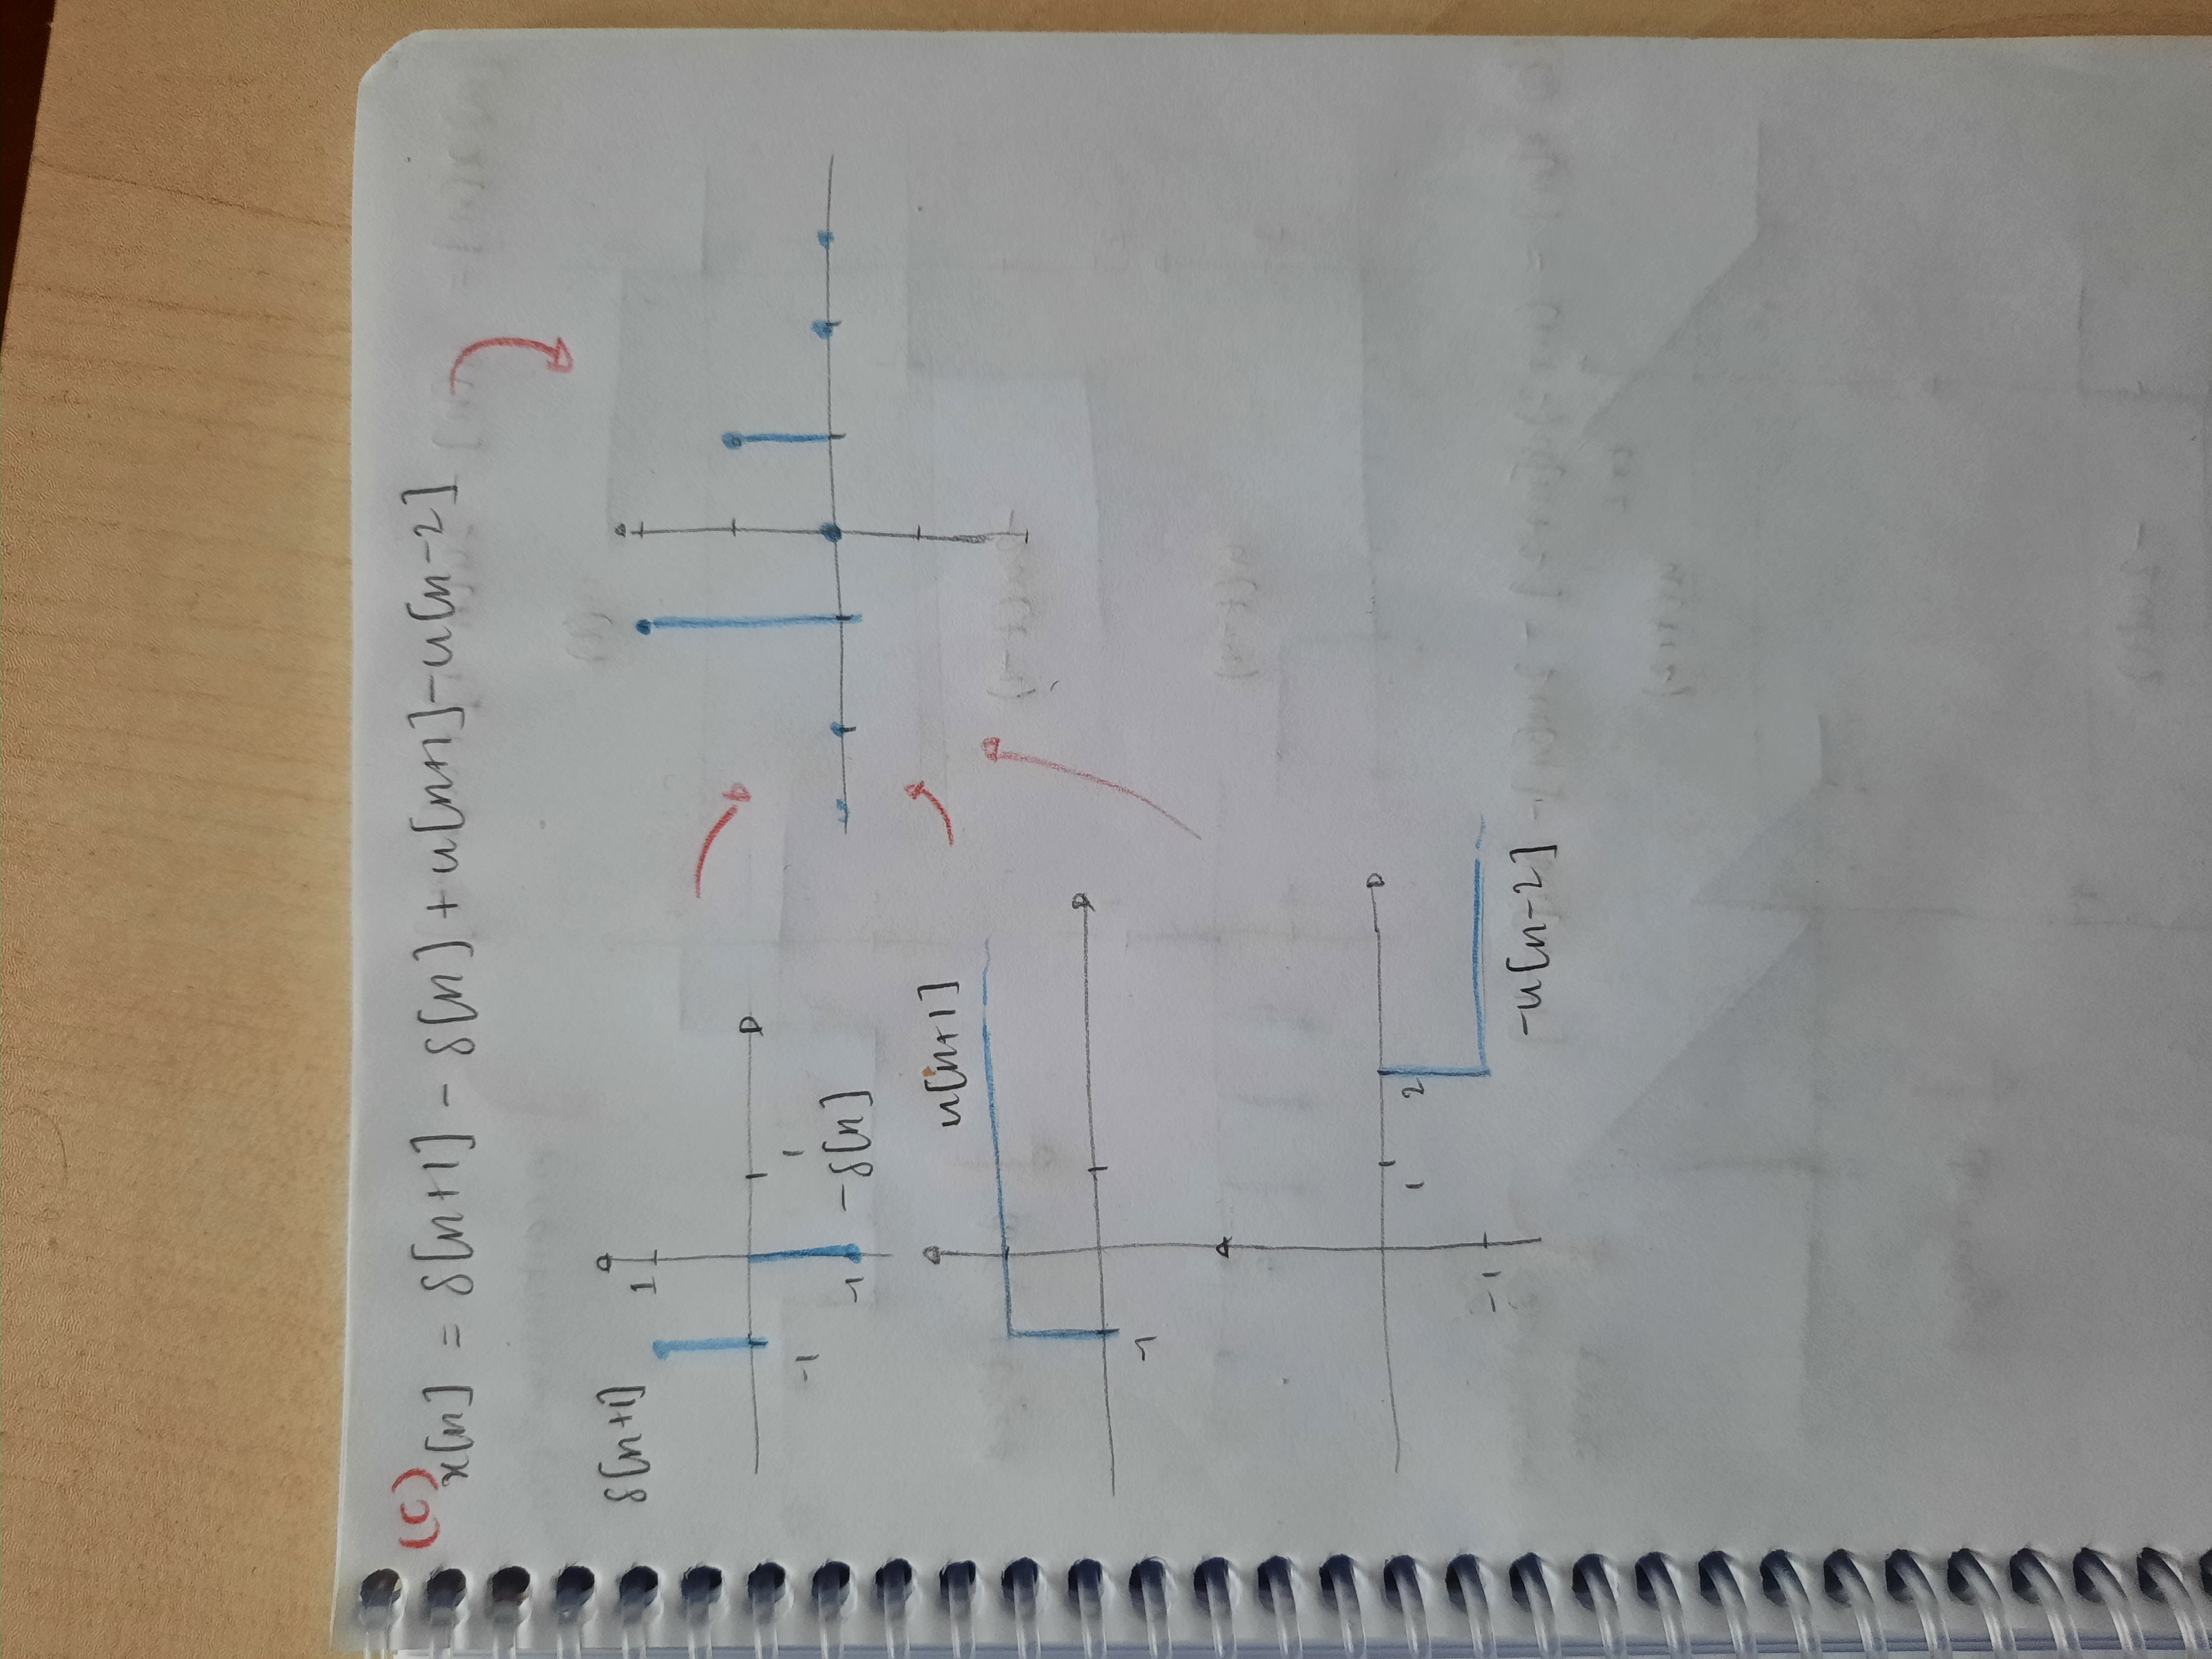 (c)
x[n] = δ[n+1] - δ[n] + u[n+1] - u[n-2]
δ[n+1]
1
-1
1
-1
-δ[n]
u[n+1]
-1
1
2
-1
-u[n-2]